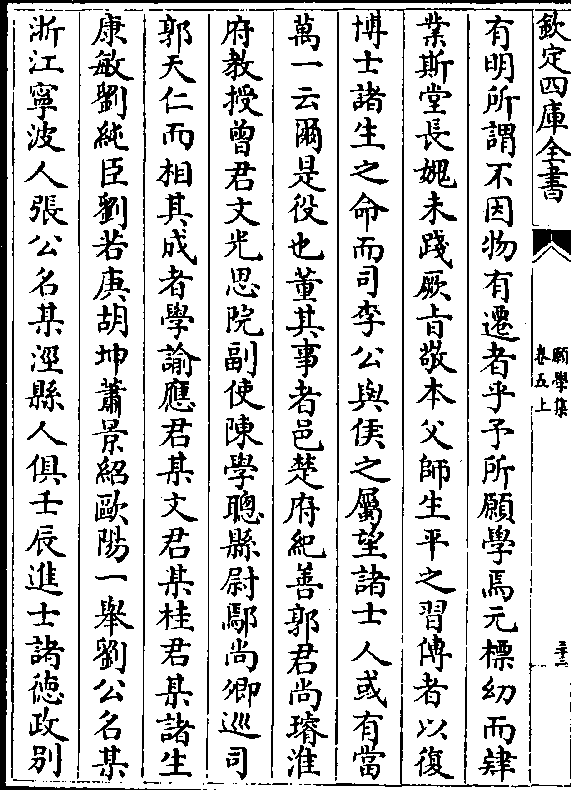 欽定四庫全書
願學集
卷五上
三十三
有明所謂不因物有遷者乎予所願學焉元標幼而肄
業斯堂長媿未踐厥㫖敬本父師生平之習傳者以復
博士諸生之命而司李公與侯之屬望諸士人或有當
萬一云爾是役也董其事者邑楚府紀善郭君尚璿淮
府教授曾君文光思院副使陳學聰縣尉鄢尚卿巡司
郭天仁而相其成者學諭應君某文君某桂君某諸生
康敏劉純臣劉若庚胡坤蕭景紹歐陽一舉劉公名某
浙江寧波人張公名某涇縣人俱壬辰進士諸徳政别